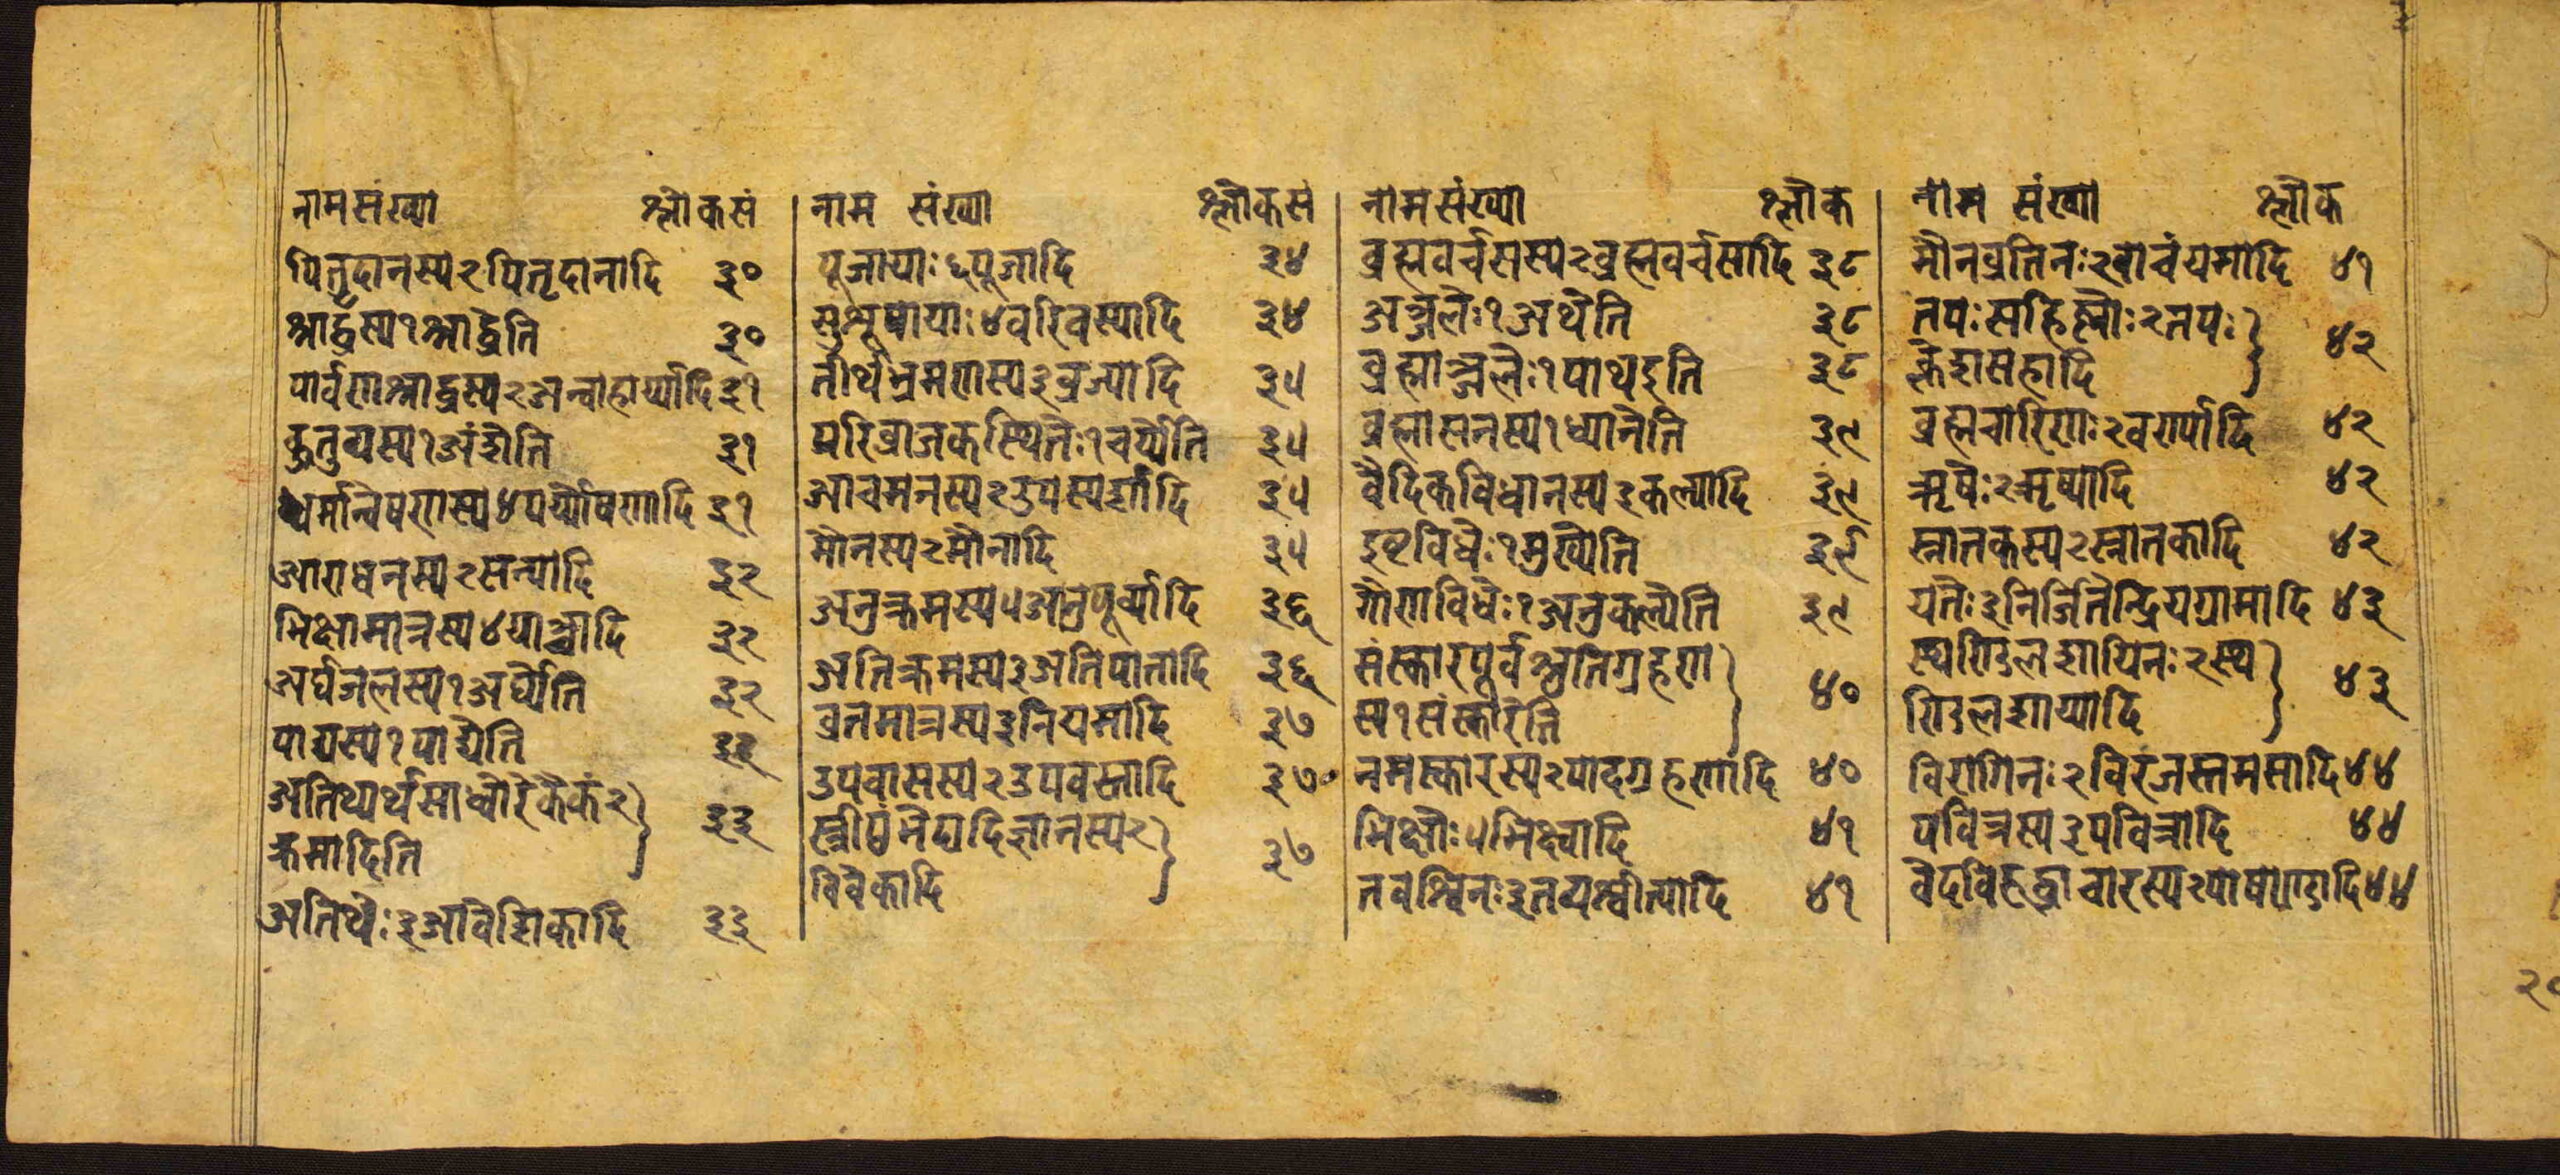 नामसंख्या श्लोकसं
पितृदानस्य२पितृदानादि ३०
श्राद्धस्य१श्राद्धेति ३०
पार्वणश्राद्धस्य२अन्वाहार्य्यादि ३१
कुतुपस्य१अंशेति ३१
धर्मान्वेषणस्य४पर्य्येषणादि ३१
आराधनस्य२सन्यादि ३२
भिक्षामात्रस्य४याञ्चादि ३२
अर्घजलस्य१अर्घ्येति ३२
पाद्यस्य१पाद्येति ३३
अतिथ्यर्थसाध्वोरेकैकं२
क्रमादिति ३३
अतिथेः३आवेशिकादि ३३
नाम संख्या श्लोकसं
पूजायाः६पूजादि ३४
सुश्रूषायाः४वरिवस्यादि ३४
तीर्थभ्रमणस्य३व्रज्यादि ३५
परिव्राजकस्थितेः१चर्य्येति ३५
आचमनस्य२उपस्पर्शादि ३५
मौनस्य२मौनादि ३५
अनुक्रमस्य५आनुपूर्व्यादि ३६
अतिक्रमस्य३अतिपातादि ३६
व्रतमात्रस्य३नियमादि ३७
उपवासस्य२उपवस्तादि ३७
विवेकादि ३७
नामसंख्या श्लोक
ब्रह्मवर्चसस्य२ब्रह्मवर्चसादि ३८
अञ्जलेः१अथेति ३८
ब्रह्माञ्जलेः१पाथइति ३८
ब्रह्मासनस्य१ध्यानेति ३९
वैदिकविधानस्य३कल्पादि ३९
इष्टविधेः१मुख्येति ३९
गौणविधेः१अनुकल्पेति ३९
संस्कारपूर्वश्रुतिग्रहण
स्य१संस्कारेति ४०
नमस्कारस्य२पादग्रहणादि ४०
भिक्षोः५भिक्ष्वादि ४१
तपश्विनः३तपश्वीत्यादि ४१
नाम संख्या श्लोक
मौनव्रतिनः२वाचंयमादि ४१
तपःसहिष्णोः२तपः
क्लेशसहादि ४२
ब्रह्मचारिणः२वर्ण्यादि ४२
ऋषेः२ऋष्यादि ४२
स्नातकस्य२स्नातकादि ४२
यतेः३निर्जितेन्द्रियग्रामादि ४३
स्थण्डिलशायिनः२स्थ
ण्डिलशाय्यादि ४३
विरागिनः२विरजस्तमसादि ४४
पवित्रस्य३पवित्रादि ४४
वेदविरुद्धाचारस्य२पाषाण्डादि ४४